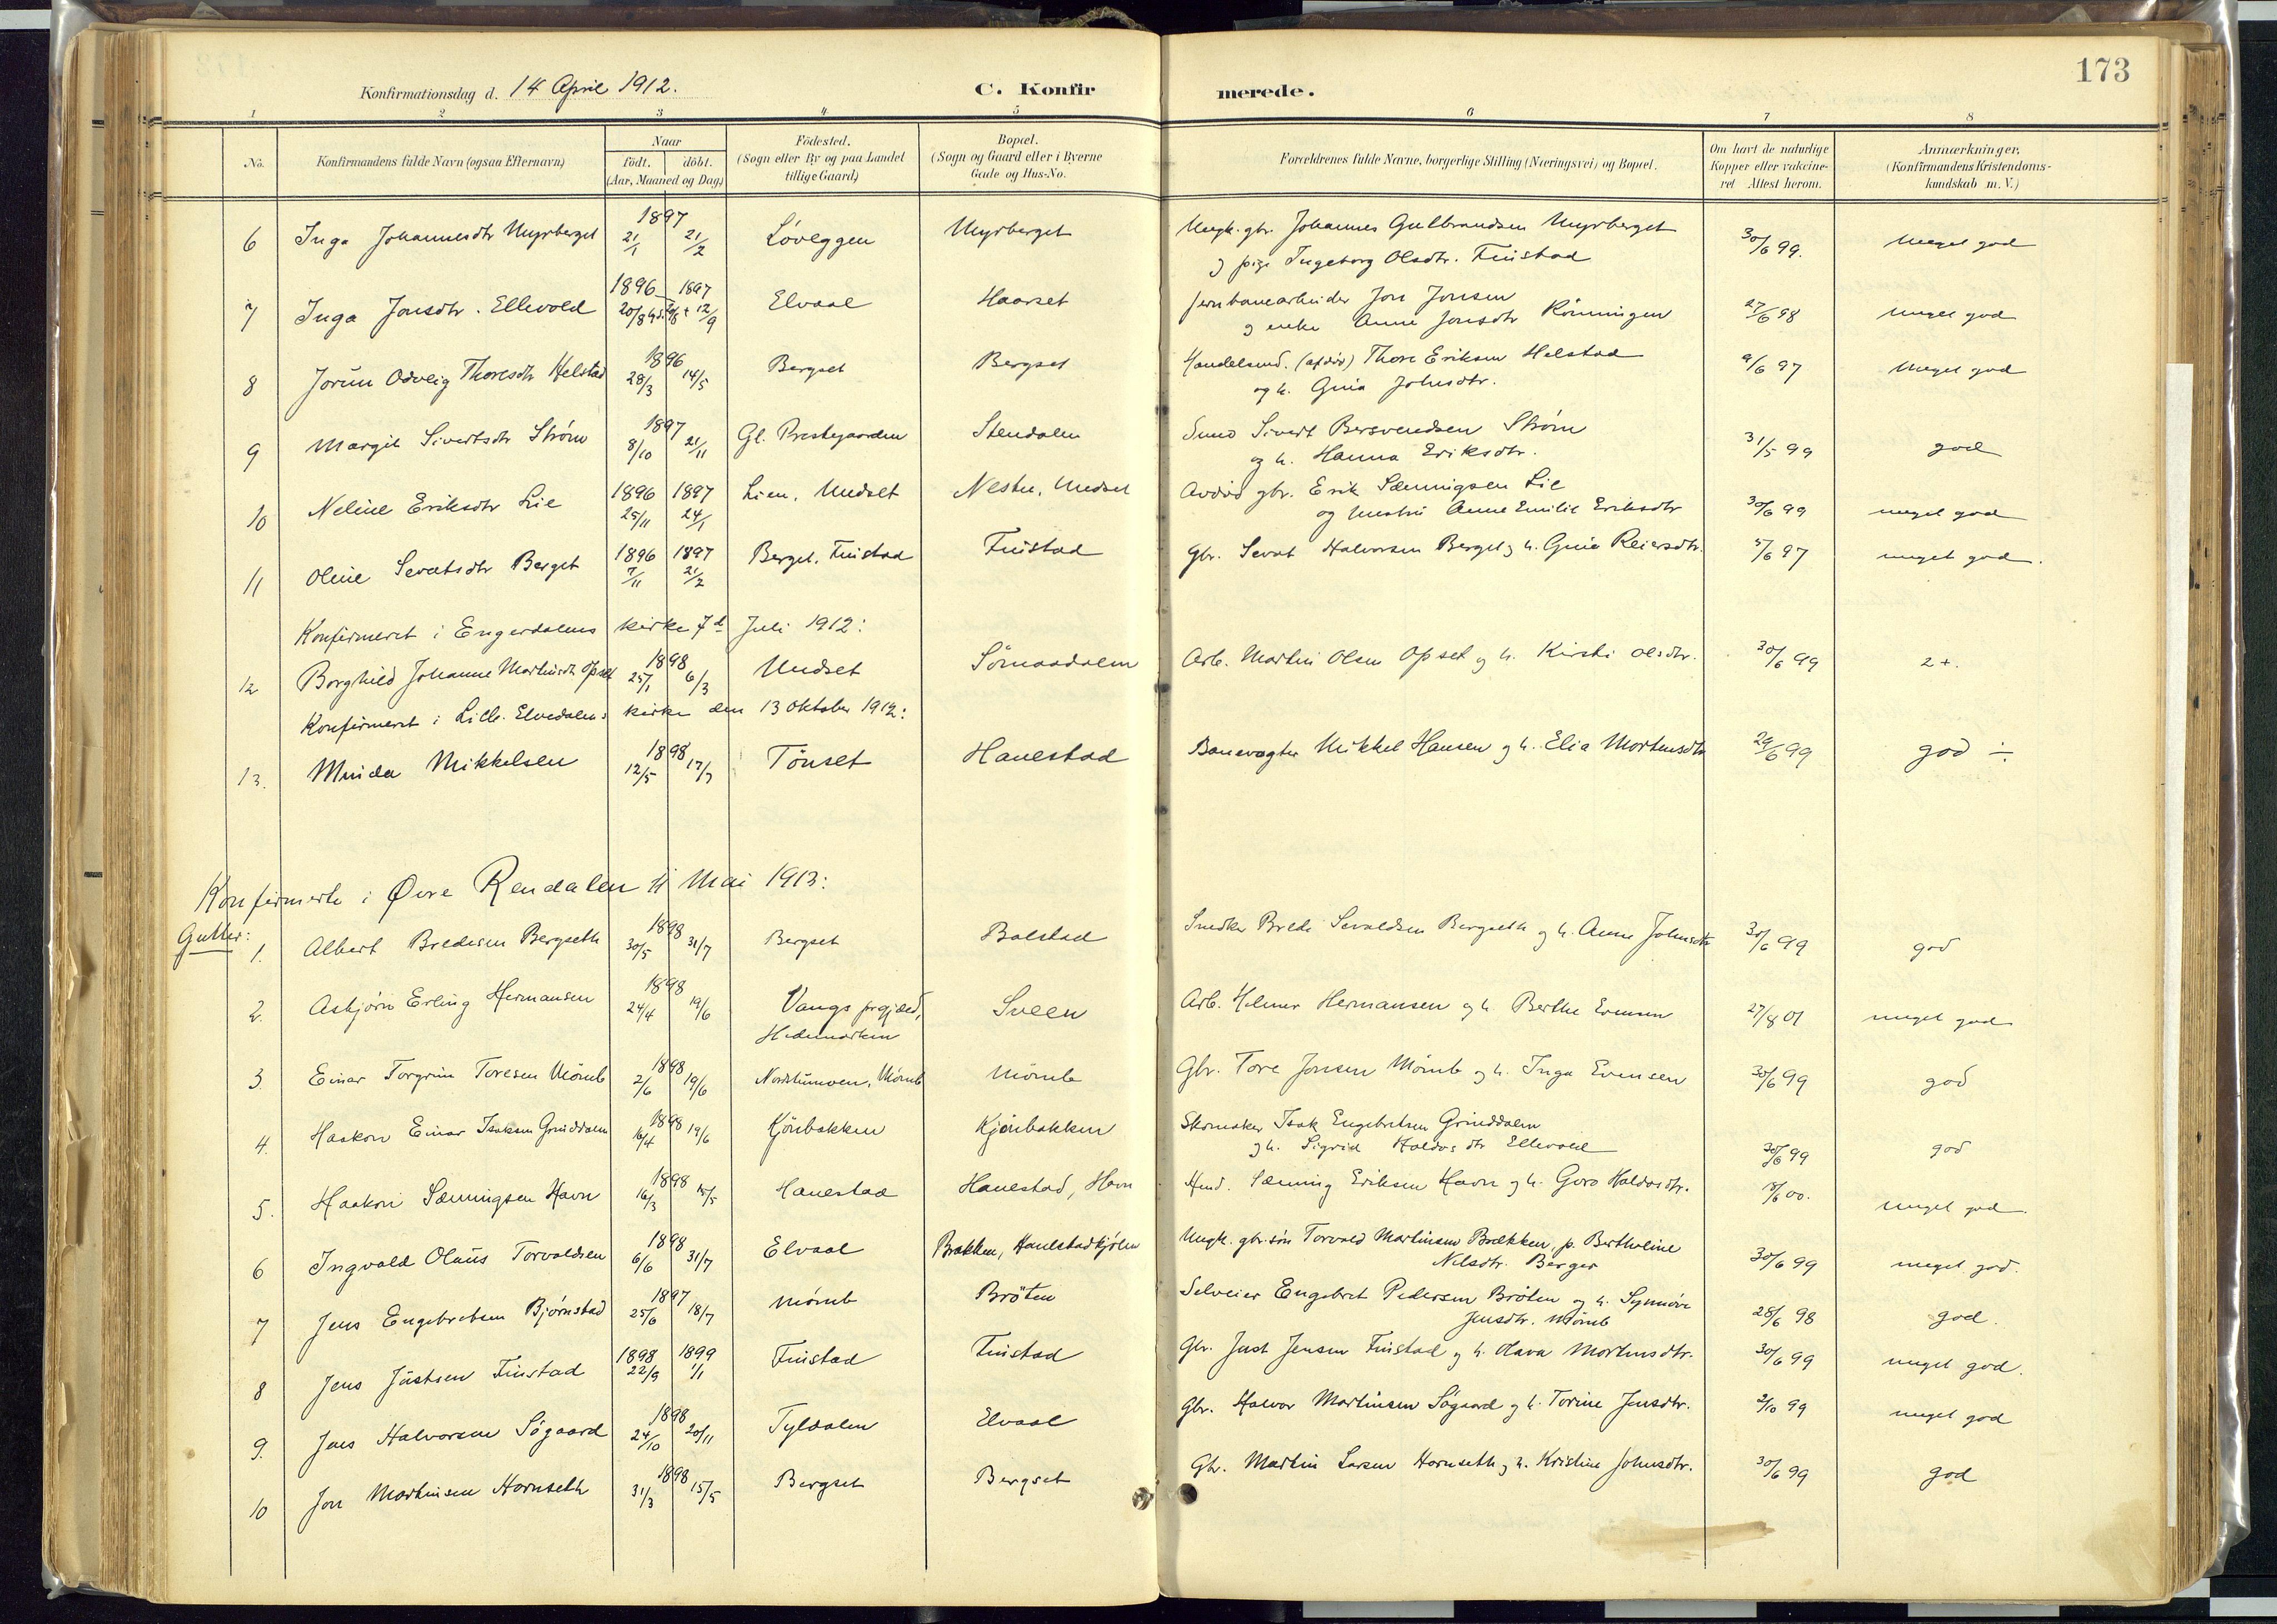 173
Konfirmationsdag d. 14 April 1912. C. Konfir merede.
1 2 3 4 5 6 7 8
No. Konfirmandens fulde Navn (ogsaa Efternavn) Naar födt. döbt. (Aar, Maaned og Dag) Födested. (Sogn eller By og paa Landet tillige Gaard) Bopæl. (Sogn og Gaard eller i Byerne Gade og Hus-No. Forældrenes fulde Navne, borgerlige Stilling (Næringsvei) og Bopæl. Om havt de naturlige Kopper eller vakcineret Attest herom. Anmærkninger, (Konfirmandens Kristendomskundskab m. V.)
6 Inga Johannesdtr Myrberget 1897 21/1 21/2 Löveggen Myrberget Ungk. gbr. Johannes Gulbrandsen Myrberget 30/6 99. Meget god
og pige Ingeborg Olsdtr. Finstad
7 Inga Jonsdtr. Ellevold 1896 1897 20/8 12/9 Elvaal Haarset Jernbanearbeider Jon Jonsen 27/6 98 meget god
og enke Anne Jonsdtr Rönningen
8 Jorun Odveig Thoresdtr Helstad 1896 28/3 14/5 Bergset Bergset Handelsmd. (afdöd) Thore Eriksen Helstad 9/6 97 Meget god
og h. Gina Johnsdtr.
9 Margit Sivertsdtr Ström 1897 8/10 21/11 Gl. Prestegaarden Stendalen Smed Sivert Bersvendsen Ström 31/5 99 god
og h. Hanna Eriksdtr.
10 Neline Eriksdtr Lie 1896 25/11 1897 24/1 Lien, Undset Nesteu, Undset Avdöd gbr. Erik Sæmingsen Lie
og hustru Anne Emilie Eriksdtr 30/6 99 meget god
11 Oline Sevatsdtr Berget 1896 7/11 1897 21/2 Berget, Finstad Finstad Gbr. Sevat Halvorsen Berget og h. Gina Reiersdtr. 5/6 97 meget god.
Konfirmeret i Engerdalens kirke 7d Juli 1912:
12 Borghild Johanne Martinsdtr Opset 1898 25/1 6/3 Undset Sömaadalen Arb. Martin Olsen Opset og h. Kirsti Olsdtr. 30/6 99 2+.
Konfirmeret i Lille Elvedalens kirke den 13 oktober 1912:
13. Minda Mikkelsen 1898 12/5 17/7 Tönset Hanestad Banevogter Mikkel Hansen og h. Elia Mortensdtr 29/6 99 god ÷
Konfirmerte i Øvre Rendalen 11 Mai 1913:
Gutter:
1. Albert Bredesen Bergseth 1898 30/5 31/7 Bergset Bolstad Snedker Brede Sevaldsen Bergseth og h. Anne Johnsdtr 30/6 99 god
2. Asbjörn Erling Hermansen 1898 24/4 19/6 Vangs prgjæld, Sveen Arb. Helmer Hermansen og h Berthe Evensen 27/8 01 meget god
Hedemarken
3. Einar Torgrim Toresen Mömb 1898 2/6 19/6 Nordstumoen, Mömb Mömb Gbr. Tore Jonsen Mömb og h. Inga Evensen 30/6 99 god
4. Haakon Einar Isaksen Grinddalen 1898 16/4 19/6 Kjönbakken Kjönbakken Skomaker Isak Engebretsen Grinddalen
og h. Sigrid Haldosdtr Ellevold 30/6 99 god
5. Haakon Sæmingsen Havn 1898 16/3 15/5 Hanestad Hanestad, Havn Hmd. Sæming Eriksen Havn og h. Guro Haldosdtr. 18/6 00. meget god.
6 Ingvald Olaus Torvaldsen 1898 6/6 31/7 Elvaal Brækken, Hanestadkjölen Ungk. gbr.sön Torvald Martinsen Brækken, p. Bertholine
Nilsdtr. Berger 30/6 99 meget god.
7 Jens Engebretsen Bjørnstad 1897 25/6 18/7 Mömb Bröten Selveier Engebret Pedersen Bröten og h. Synnöve
Jensdtr. Mömb 28/6 98 god.
8 Jens Justsen Finstad 1898 22/9 1899 1/1 Finstad Finstad Gbr. Just Jensen Finstad og h. Olava Mortensdtr. 30/6 99 meget god.
9. Jens Halvorsen Sögaard 1898 24/10 20/11 Tyldalen Elvaal Gbr. Halvor Martinsen Sögaard og h. Torine Jensdtr. 2/10 99 meget god
10 Jon Martinsen Hornseth 1898 31/3 15/5 Bergset Bergset Gbr. Martin Larsen Hornseth og h. Kristine Johnsdtr. 30/6 99 god